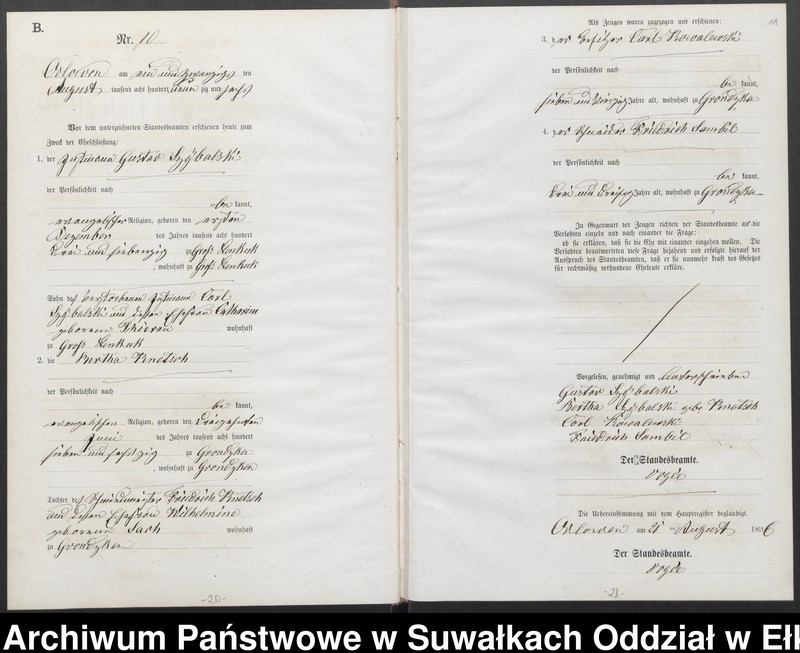 B.
Nr. 10
am ein und zwanzigs ten
August tausend acht hundert neun zig und sechs
Vor dem unterzeichneten Standesbeamten erschienen heute zum
Zweck der Eheschließung:
1. der Gustav
der Persönlichkeit nach
be kannt,
evangelischer Religion, geboren den ersten
Dezember des Jahres tausend acht hundert
drei und siebenzig zu Groß Lenkuk
, wohnhaft zu Groß Lenkuk
Sohn des verstorbenen Carl
und dessen Ehefrau Catharina
geborenen wohnhaft
zu Groß Lenkuk
2. die Bertha Knetsch
der Persönlichkeit nach
be kannt,
evangelischen Religion, geboren den dreizehnten
Juni des Jahres tausend acht hundert
sieben und sechszig zu Grondzken
, wohnhaft zu Grondzken
Tochter des Schmiedemeister Friedrich Knetsch
und dessen Ehefrau Wilhelmine
geborenen wohnhaft
zu Grondzken
-20-
11
Als Zeugen waren zugezogen und erschienen:
3. der Besitzer Carl Kowalewski
der Persönlichkeit nach
be kannt,
sieben und vierzig Jahre alt, wohnhaft zu Grondzken
4. der Schneider Friedrich Sambil
der Persönlichkeit nach
be kannt,
drei und dreißig Jahre alt, wohnhaft zu Grondzken
In Gegenwart der Zeugen richtete der Standesbeamte an die
Verlobten einzeln und nach einander die Frage:
ob sie erklären, daß sie die Ehe mit einander eingehen wollen. Die
Verlobten beantworteten diese Frage bejahend und erfolgte hierauf der
Ausspruch des Standesbeamten, daß er sie nunmehr kraft des Gesetzes
für rechtmäßig verbundene Eheleute erkläre.
Vorgelesen, genehmigt und unterschrieben
Gustav
Bertha geb. Knetsch
Carl Kowalewski
Friedrich Sambil
Der Standesbeamte.
Die Uebereinstimmung mit dem Hauptregister beglaubigt.
am 21 ten August 1896
Der Standesbeamte.
-21-
Archiwum Państwowe w Suwałkach Oddział w Ełk